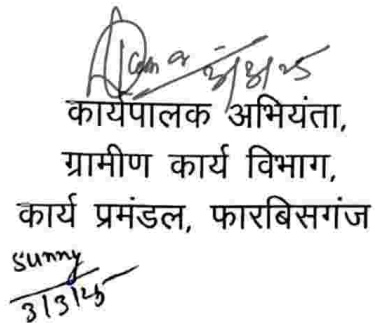 3/3/25
कार्यपालक अभियंता,
ग्रामीण कार्य विभाग,
कार्य प्रमंडल, फारबिसगंज
sunny
3/3/25